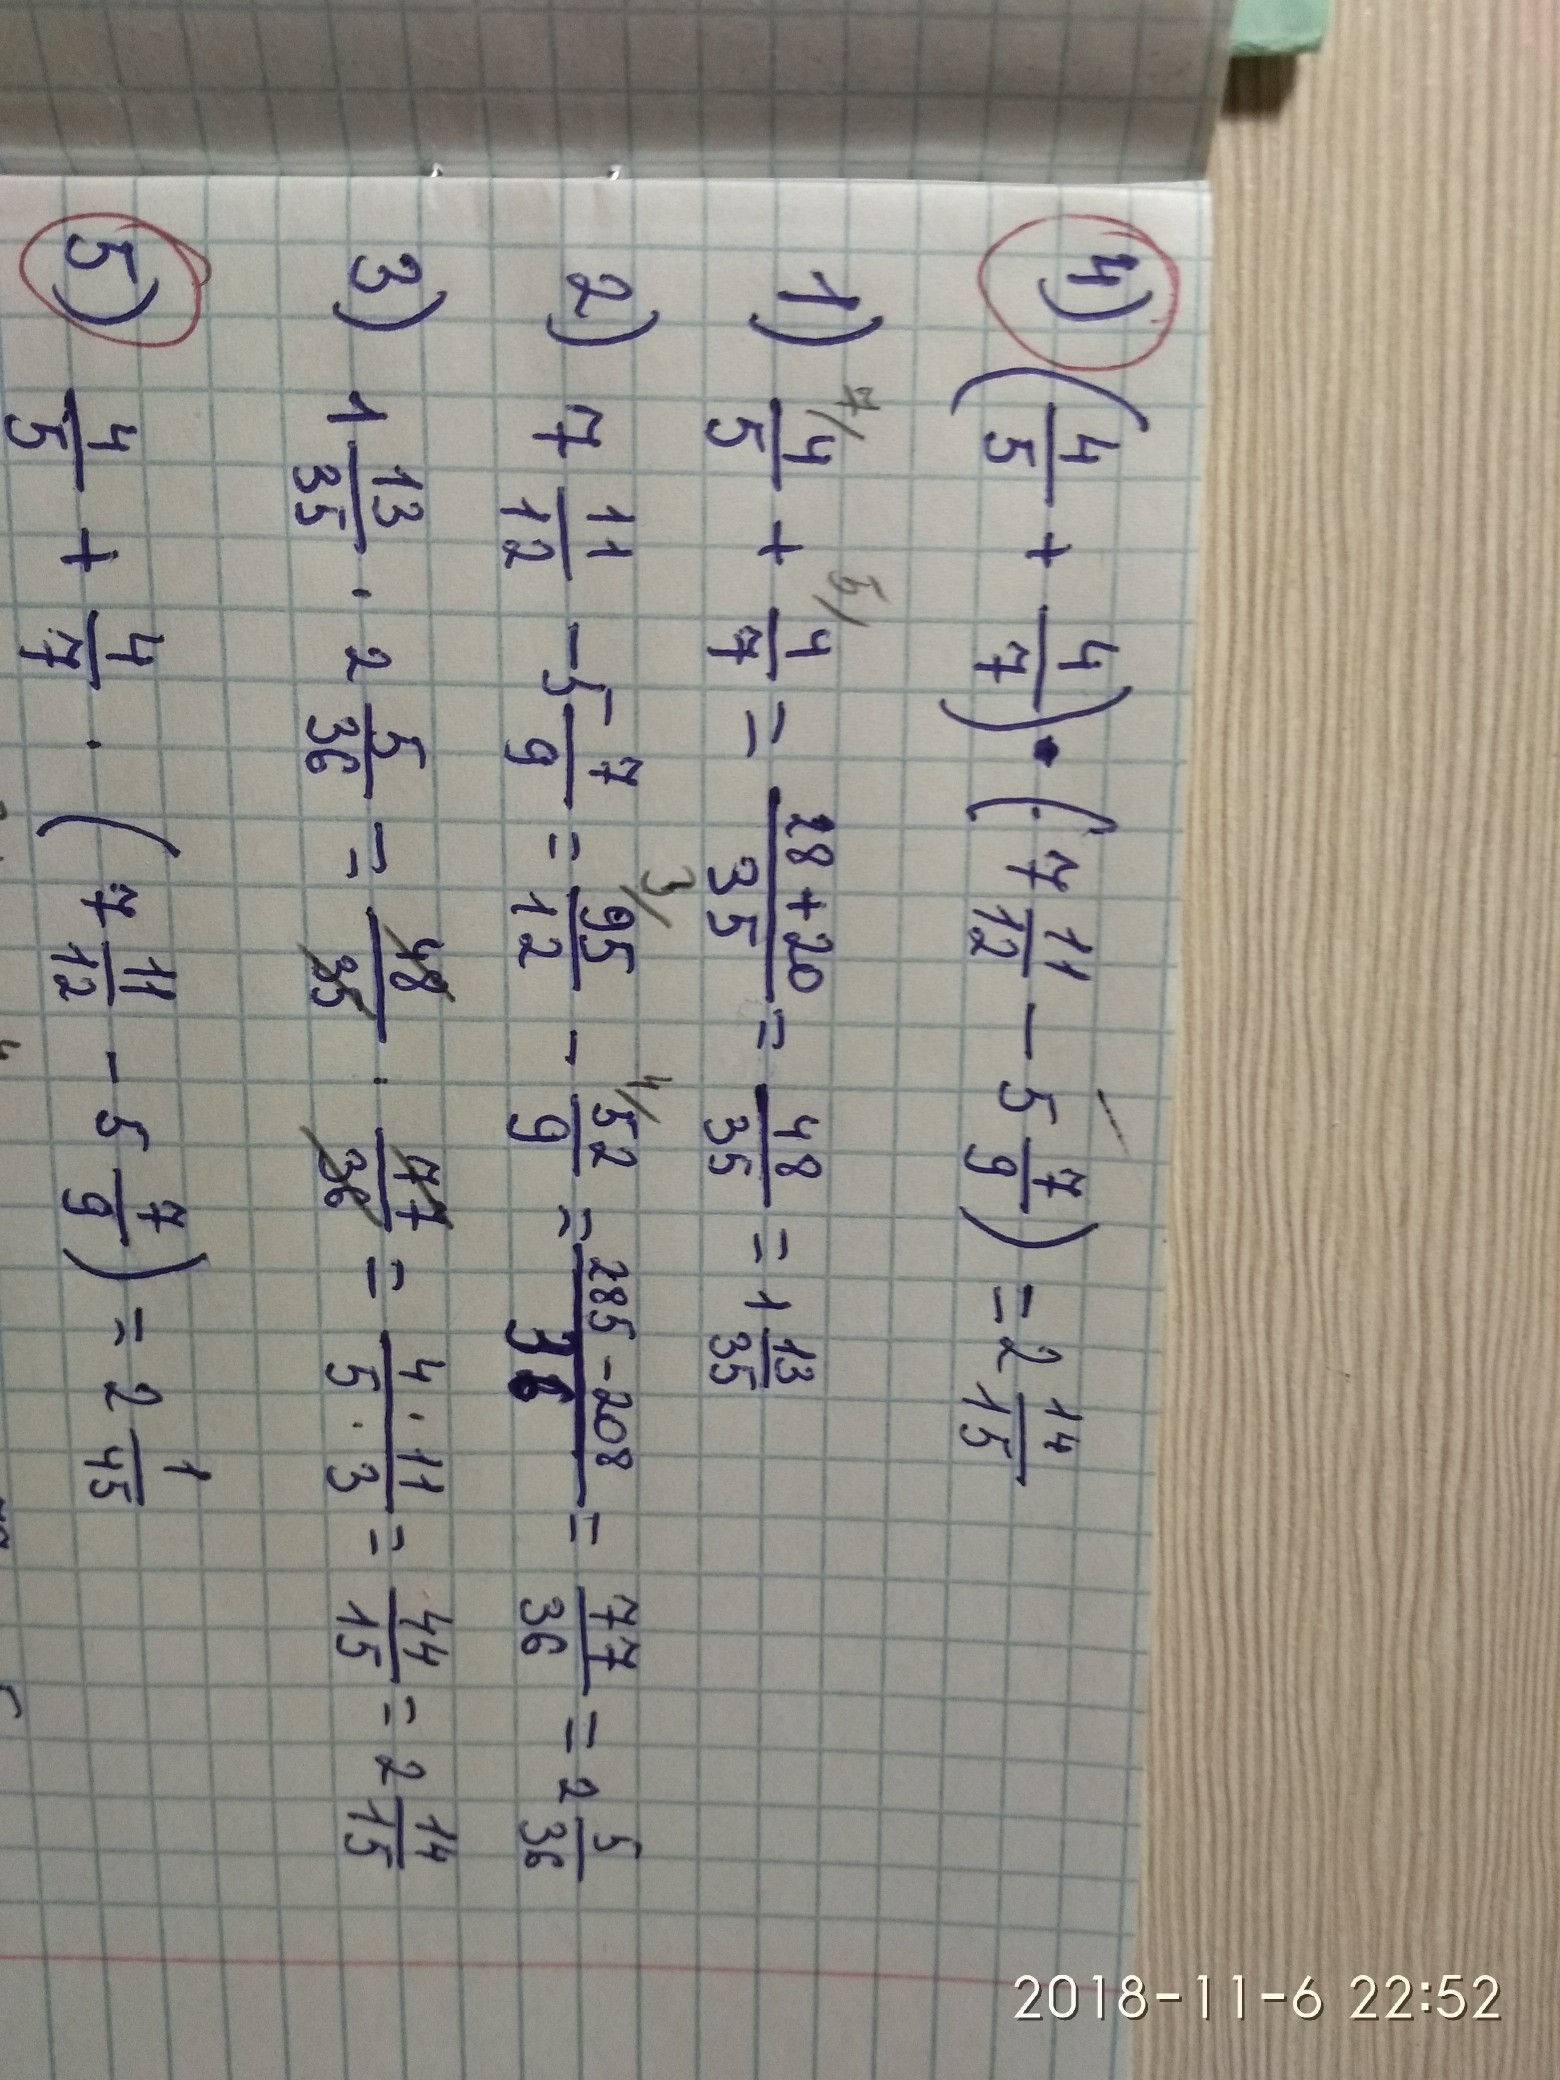 4) (4/5 + 4/7) · (7 11/12 − 5 7/9) = 2 14/15
1) 7/ 4/5 + 5/ 4/7 = (28+20)/35 = 48/35 = 1 13/35
2) 7 11/12 − 5 7/9 = 3/ 95/12 − 4/ 52/9 = (285−208)/36 = 77/36 = 2 5/36
3) 1 13/35 · 2 5/36 = 48/35 · 77/36 = (4·11)/(5·3) = 44/15 = 2 14/15
5) 4/5 + 4/7 · (7 11/12 − 5 7/9) = 2 1/45
2018-11-6 22:52